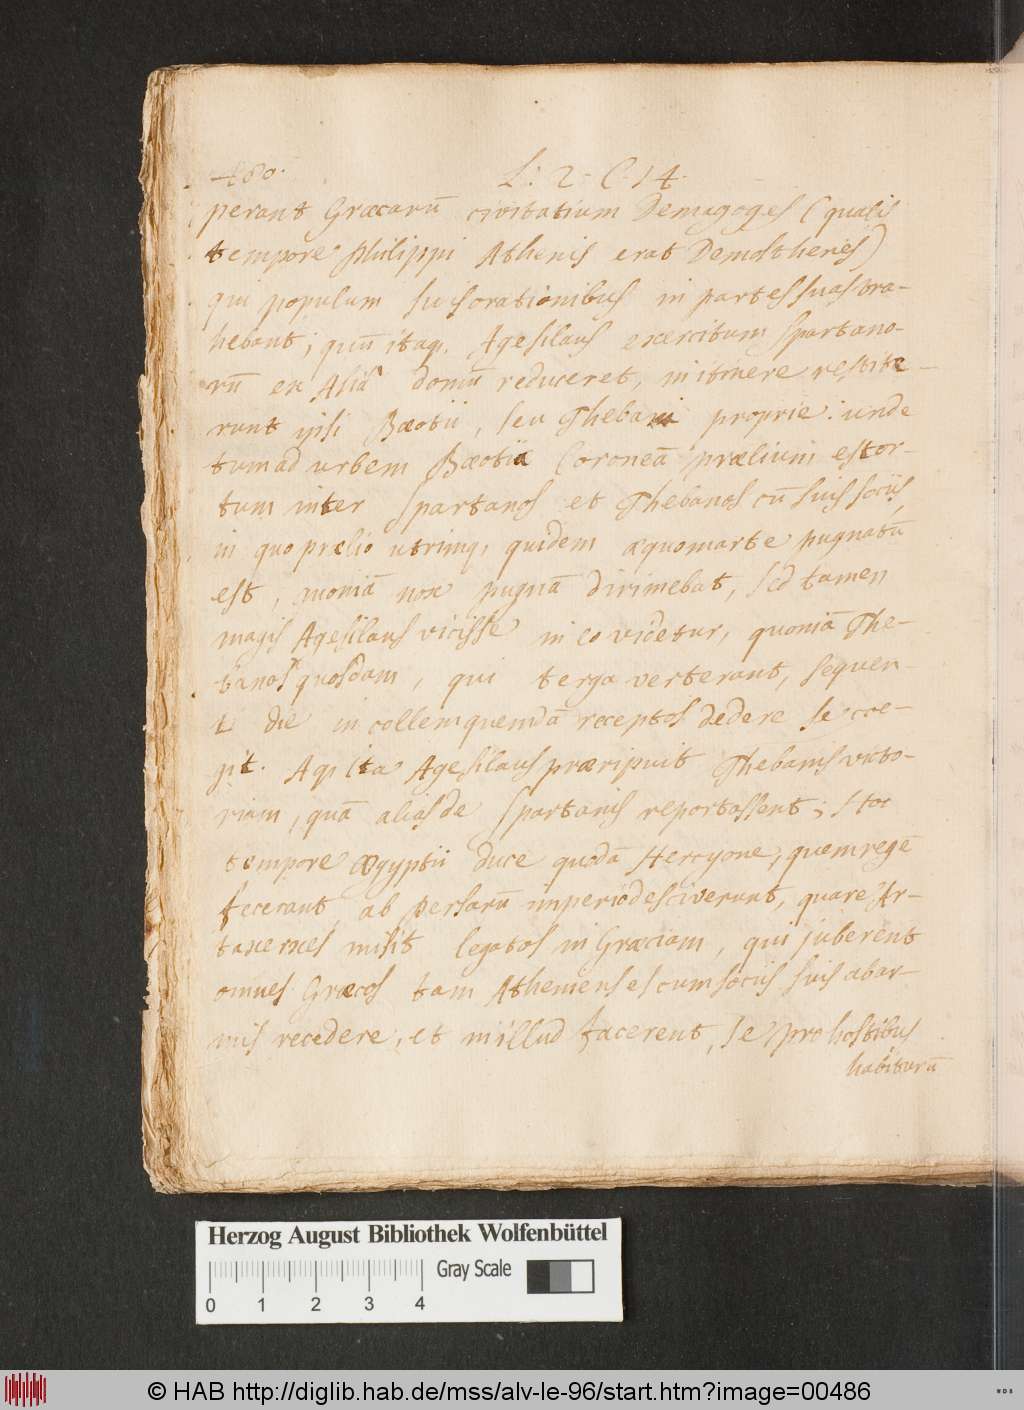 480.
L: 2. C. 14.
perant Græcarū civitatium Demagoges (qualis
tempore Philippi Athenis erat Demosthenes)
qui populum suis orationibus in partes suas tra-
hebant; quū itaq. Agesilaus exercitum Spartano-
rū ex Asiâ domū reduceret, in itinere restite-
runt ipsi Bæotii, seu Thebani proprie: unde
tum ad urbem Bæotiæ Coroneā prælium estor-
tum inter Spartanos et Thebanos cū suis sociis,
in quo prælio utrimq, quidem æquo marte pugnatū
est, quoniā nox pugnā dirimebat, sed tamen
magis Agesilaus vicisse in eo videtur, quoniā The-
banos quosdam, qui terga verterant, sequen-
t die in collem quemdā receptos dedere se coe-
git. Aqi ita Agesilaus præripuit Thebanis victo-
riam, quā alias de Spartanis reportassent; Hoc
tempore Ægyptii duce quodā Hercyone, quem regē
fecerant, ab Persarū imperio desciverunt, quare Ar-
taxerxes misit legatos in Græciam, qui juberent
omnes Græcos tam Athenienses cum sociis suis ab ar-
mis recedere, et ni illud facerent, se pro hostibus
habiturū
Herzog August Bibliothek Wolfenbüttel
Gray Scale
0 1 2 3 4
© HAB http://diglib.hab.de/mss/alv-le-96/start.htm?image=00486